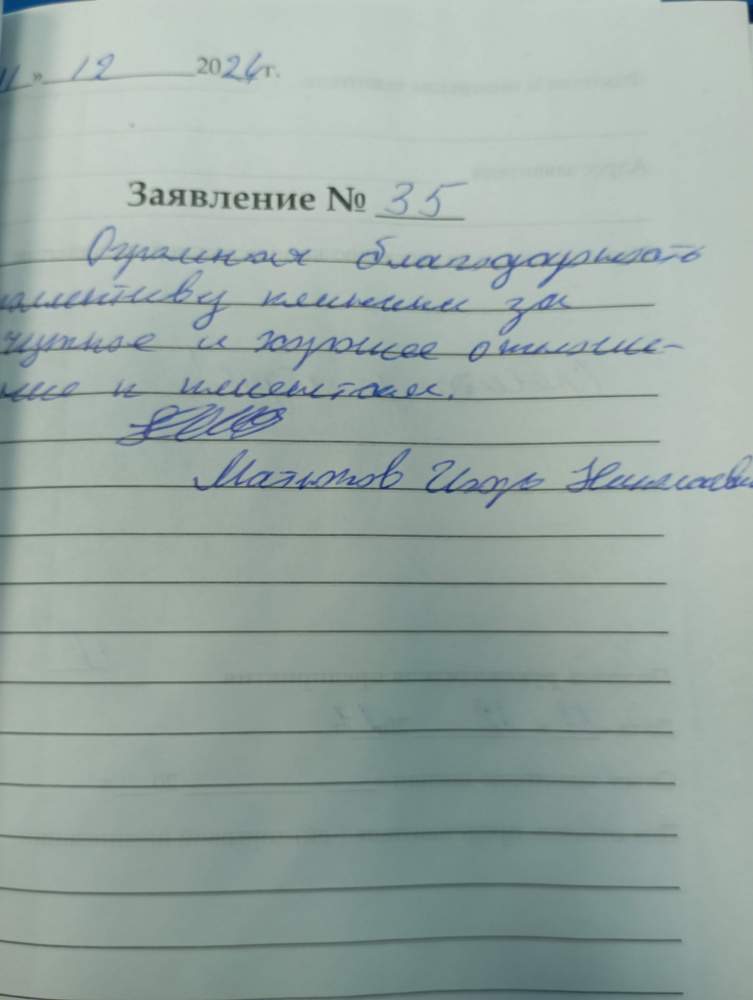 » 12 2024г.
Заявление № 35
Огромная благодарность
коллективу клиники за
чуткое и хорошее отноше-
ние к клиентам.
Матюков Игорь Николаеви